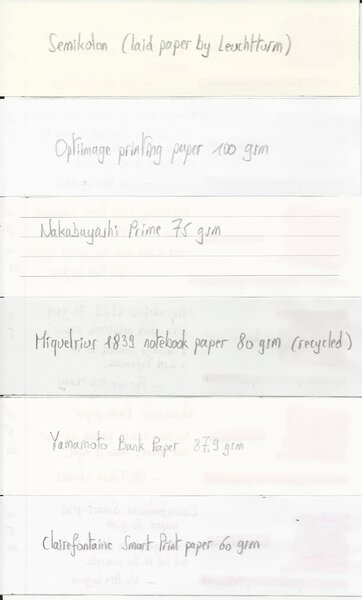 Semikolon (laid paper by Leuchtturm)
Optiimage printing paper 100 gsm
Nakabayashi Prime 75 gsm
Miquelrius 1839 notebook paper 80 gsm (recycled)
Yamamoto Bank Paper 87,9 gsm
Clairefontaine Smart Print paper 60 gsm